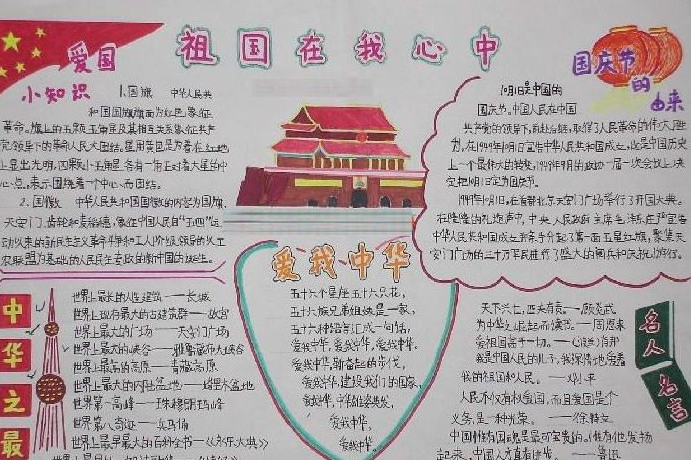 祖国在我心中
爱国
小知识
1.国旗 中华人民共
和国国旗旗面为红色,象征
革命。旗上的五颗五角星及其相互关系象征共产
党领导下的革命人民大团结。星用黄色是为着在红地
上显出光明,四颗小五角星各有一角正对着大星的中
心点,表示围绕着一个中心而团结。
2.国徽 中华人民共和国国徽的内容为国旗、
天安门、齿轮和麦稻穗,象征中国人民自“五四”运
动以来的新民主主义革命斗争和工人阶级领导的以工
农联盟为基础的人民民主专政的新中国的诞生。
国庆节
的
由来
10月1日是中国的
国庆节。中国人民在中国
共产党的领导下,前赴后继,取得了人民革命的伟大胜
利,在1949年10月1日宣告中华人民共和国成立,这是中国历史
上一个最伟大的转变,1949年9月的政协一届一次会议上决
定把10月1日定为国庆节。
1949年10月1日,在首都北京天安门广场举行了开国大典。
在隆隆的礼炮声中,中央人民政府主席毛泽东庄严宣告
中华人民共和国成立并亲手升起了第一面五星红旗,聚集天
安门广场的三十万军民进行了盛大的阅兵和庆祝游行。
中华之最
世界上最长的人造建筑——长城
世界上现存最大的古建筑群——故宫
世界上最大的广场——天安门广场
世界上最大的峡谷——雅鲁藏布大峡谷
世界上最高的高原——青藏高原
世界上最大的内陆盆地——塔里木盆地
世界第一高峰——珠穆朗玛峰
世界八奇迹——兵马俑
世界上最早最大的百科全书——《永乐大典》
爱我中华
五十六个星座五十六只花,
五十六族兄弟姐妹是一家,
五十六种语言汇成一句话,
爱我中华,爱我中华,爱我中华。
爱我中华,健儿奋起的步伐,
爱我中华,建设我们的国家,
爱我中华,中华雄姿英发,
爱我中华,
爱我中华,
名人
名言
天下兴亡,匹夫有责。——顾炎武
为中华之崛起而读书。——周恩来
爱祖国高于一切。——肖邦
我是中国人民的儿子,我深情地爱着
我的祖国和人民。——邓小平
人民不仅有权爱国,而且爱国是个
义务,是一种光荣。——徐特立
起来,中国人才有进步。——鲁迅